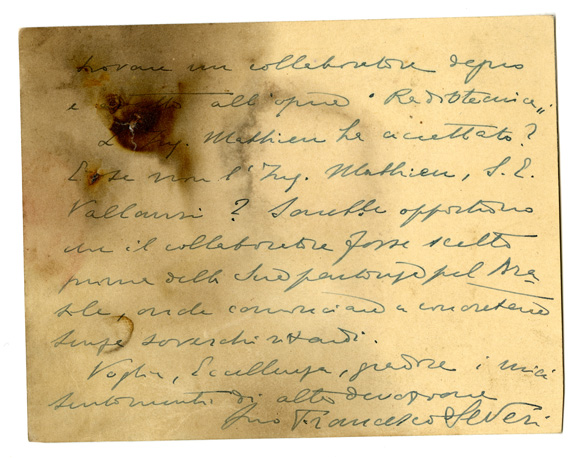 trovare un collaboratore degno
e adatto all'opera "Radiotecnica".
L'Ing. Mathieu ha accettato?
E se non l'Ing. Mathieu, S. E.
Vallauri? Sarebbe opportuno
che il collaboratore fosse scelto
prima della Sua partenza pel Bra-
sile, onde cominciare a concretare
senza soverchi ritardi.
Voglia, Eccellenza, gradire i miei
sentimenti di alta devozione
Suo Francesco Severi